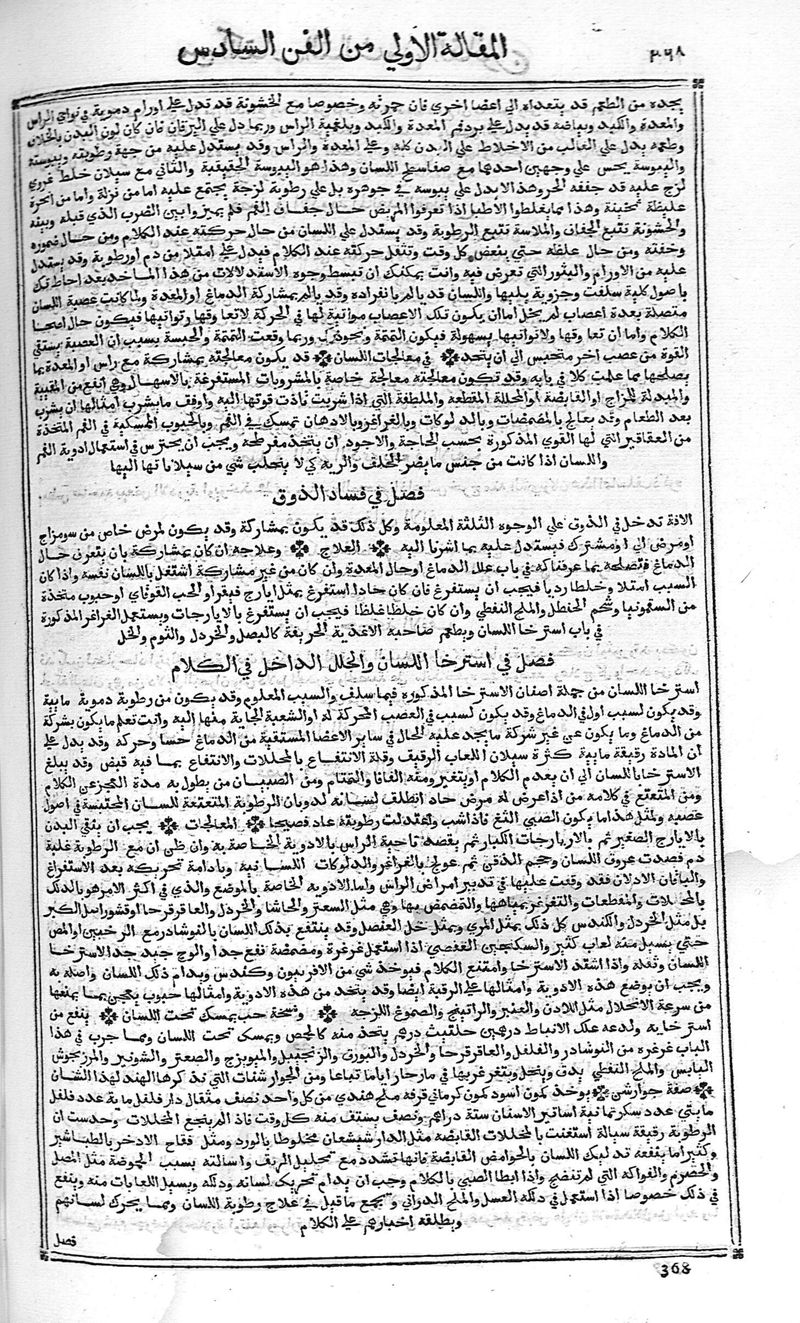 ٣٦٨ المقالة الاولي من الفن السادس
يجده من الطعم قد يتعداه الي اعضا اخري فان حمرته وخصوصا مع الخشونة قد تدل علي اورام دموية في نواي الراس
والمعدة والكبد وبياضه قد يدل علي برد فم المعدة والكبد وبلغمية الراس وربما دل علي اليرقان فان كان لون البدن بالخلاف
وطعمه يدل علي الغالب من الاخلاط علي البدن كله وعلي المعدة والراس وقد يستدل عليه من جهة رطوبته ويبوسته
واليبوسة يحس علي وجهين احدهما مع صفا سطح اللسان وهذا هو اليبوسة الحقيقية والثاني مع سيلان خلط غروي
لزج عليه قد جففه الحر وهذا لا يدل علي يبوسة في جوهره بل علي رطوبة لزجة يجتمع عليه اما من نزلة واما من ابخرة
غليظة ثخينة وهذا مما يغلطوا الاطبا اذا تعرفوا المريض حال جفاف الفم فلم يميزوا بين الضرب الذي قبله وبينه
والخشونة تتبع الجفاف والملاسة تتبع الرطوبة وقد يستدل علي اللسان من حال حركته عند الكلام ومن حال ضموره
وخفته ومن حال غلظه حتي ينعض كل وقت وتثقل حركته عند الكلام فيدل علي امتلا من دم او رطوبة وقد يستدل
عليه من الاورام والبثور التي تعرض فيه وانت يمكنك ان تبسط وجوه الاستدلالات من هذا الماخذ بعد احاطتك
باصول كلية سلفت وجزوية يليها واللسان قد يالم بانفراده وقد يالم بمشاركة الدماغ او المعدة ولما كانت عصبة اللسان
متصلة بعدة اعصاب لم يخل اما ان يكون تلك الاعصاب مواتية لها في الحركة لا تعاوقها وتواتيها فيكون حال اصحا
الكلام واما ان تعاوقها ولا تواتيها بسهولة فيكون التمتمة ونحو ذلك وربما وقعت التمتمة والحبسة بسبب ان العصبة يستقي
القوة من عصب اخر منحبس الي ان يتجه في معالجات اللسان قد يكون معالجته بمشاركة مع راس او المعدة بما
يصلحها مما علمت كلا في بابه وقد تكون معالجته معالجة خاصة بالمشروبات المستفرغة بالاسهال وهي انفع من المقيية
والمبدلة للمزاج او القابضة او المحللة المقطعة والملطفة التي اذا شربت نفذت قوتها اليه واوفق ما يشرب امثالها ان يشرب
بعد الطعام وقد يعالج بالمضمضات وبالدلوكات وبالغراغر وبالادهان تمسك في الفم وبالحبوب الممسكية في الفم المتخذة
من العقاقير التي لها القوي المذكورة بحسب الحاجة والاجود ان يتخذ مفرطحة ويجب ان يحترس في استعمال ادوية الفم
واللسان اذا كانت من جنس ما يضر الحلف والرية كي لا يتحلب شي من سيلاناتها اليها
فصل في فساد الذوق
الافة تدخل في الذوق علي الوجوه الثلثة المعلومة وكل ذلك قد يكون بمشاركة وقد يكون لمرض خاص من سومزاج
او مرض الي او مشترك فيستدل عليه بما اشرنا اليه العلاج وعلاجه ان كان بمشاركة بان يتعرف حال
الدماغ فتصلحه بما عرفناكه في باب علل الدماغ او حال المعدة وان كان من غير مشاركة اشتغل باللسان نفسه واذا كان
السبب امتلا وخلطا رديا فيجب ان يستفرغ فان كان حادا استفرغ بمثل ايارج فيقرا والحب القوقاي او حبوب متخذة
من السقمونيا وشحم الحنطل والملح النفطي وان كان خلطا غلظا فيجب ان يستفرغ بالايارجات ويستعمل الغراغر المذكورة
في باب استرخا اللسان ويطعم صاحبه الاغذية الحريفة كالبصل والخردل والثوم والخل
فصل في استرخا اللسان والخلل الداخل في الكلام
استرخا اللسان من جملة اصفان الاسترخا المذكورة فيما سلف والسبب المعلوم وقد يكون من رطوبة دموية مايية
وقد يكون لسبب اول في الدماغ وقد يكون لسبب في العصب المحركة له او الشعبة الجاية منها اليه وانت تعلم ما يكون بشركة
من الدماغ وما يكون عن غير شركة ما يجد عليه الحال في ساير الاعضا المستقية من الدماغ حسا وحركة وقد يدل علي
ان المادة رقيقة مايية كثرة سيلان اللعاب الرقيف وقلة الانتفاع بالمحللات والانتفاع بما فيه قبض وقد يبلغ
الاسترخا باللسان الي ان يعدم الكلام او يتغير ومنه الفافا والتمتام ومن الصبيان من يطول به مدة العجز عن الكلام
ومن المتعتع في كلامه من اذا عرض له مرض حاد انطلف لسانه لذوبان الرطوبة المتعتعة للسان المحتبسة في اصول
عصبه ولمثل هذا ما يكون الصبي الثغ فاذا شب واعتدلت رطوبته عاد فصيحا المعالجات يجب ان ينقي البدن
بالايارج الصغير ثم بالايارجات الكبار ثم يقصد ناحية الراس بالادوية الخاصة به وان ظن ان مع الرطوبة غلبة
دم فصدت عروق اللسان وحجم الذقن ثم عولج بالغراغر والدلوكات اللسانية وبادامة تحريكه بعد الاستفراغ
فقد وقفت عليها في تدبير امراض الراس واما الادوية الخاصة بالموضع والذي في اكثر الامر هو بالدلك
بالمحللات والمقطعات والتغرغر بمياهها والتمضمض بها وهي مثل السعتر والحاشا والخردل والعاقرقرحا او قشور اصل الكبر
بل مثل الخردل والكندس كل ذلك بمثل المري وبمثل خل العنصل وقد ينتفع بدلك اللسان بالنوشادر مع
حتي يسيل منه لعاب كثير والسكنجبين العنصلي اذا استعمل غرغرة ومضمضة نفع جدا والوج جيد جدا لاسترخا
اللسان وثقله واذا اشتد الاسترخا وامتنع الكلام فيوخذ شي من الافربيون وكندس ويدام دلك اللسان واصله به
ويجب ان يوضع هذه الادوية وامثالها علي الرقبة ايضا وقد يتخذ من هذه الادوية وامثالها حبوب يعجن بما يمنعها
من سرعة الانحلال مثل اللادن والعنبر والراتينج والصموغ اللزجة ونسخة حب يمسك تحت اللسان ينفع من
استرخايه ولدغه علك الانباط درهمين حلتيث درهم يتخذ منه كالحمص ويمسك تحت اللسان ومما جرب في هذا
الباب غرغره من النوشادر والفلفل والعاقرقرحا والخردل والبورق والزنجبيل والميويزج والصعتر والشونيز والمرزنجوش
اليابس والملح النفطي يدق وينخل ويتغرغر بها في ماء حار اياما تباعا ومن الجوارشنات التي تذكرها الهند لهذا الشان
صفة جوارشن يوخذ كمون اسود كمون كرماني قرفه ملح هندي من كل واحد نصف مثقال دار فلفل ماية عدد فلفل
مايتي عدد سكر ثمانية اساتير الاستار ستة دراهم ونصف يستف منه كل وقت فاذا لم ينجع المحللات وحدست ان
الرطوبة رقيقة سيالة استعنت بالمحللات القابضة مثل الدارشيشعان مخلوطا بالورد ومثل فقاح الاذخر بالطباشير
وكثيرا ما ينفعه تدليك اللسان بالحوامض القابضة فانها تشدد مع تحليل الريف واسالته بسبب الحموضة مثل المصل
والحصرم والفواكه التي لم تنضج واذا ابطا الصبي بالكلام وجب ان يدام تحريك لسانه ودلكه ويسيل اللعابات منه وينفع
في ذلك خصوصا اذا استعمل في دلكه العسل والملح الدراني ويجمع ما قيل في علاج رطوبة اللسان ومما يحرك لسانهم
ويطلقه اخبارهم علي الكلام
فصل
368